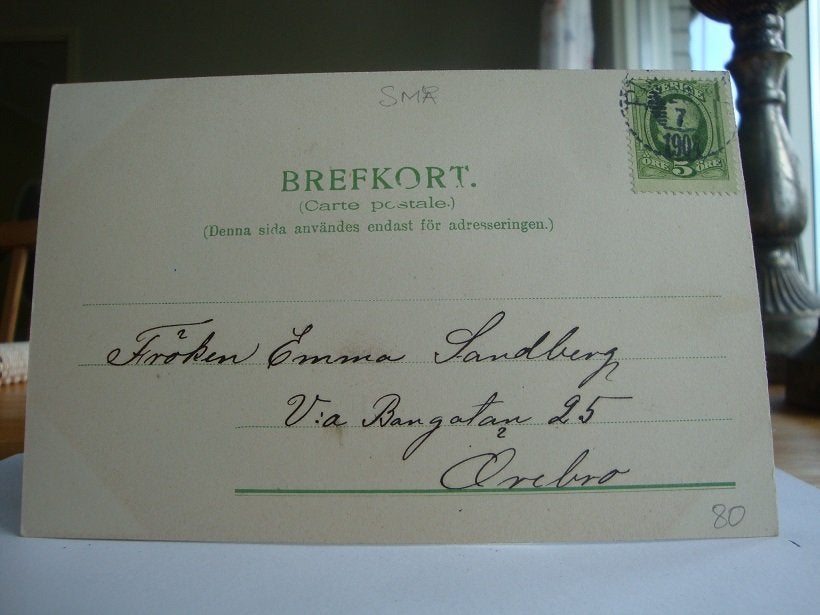 SMÅ
SVERIGE
7
ÖRE 5 ÖRE
BREFKORT.
(Carte postale.)
(Denna sida användes endast för adresseringen.)
Fröken Emma Sandberg
V:a Bangatan 25
Örebro
80